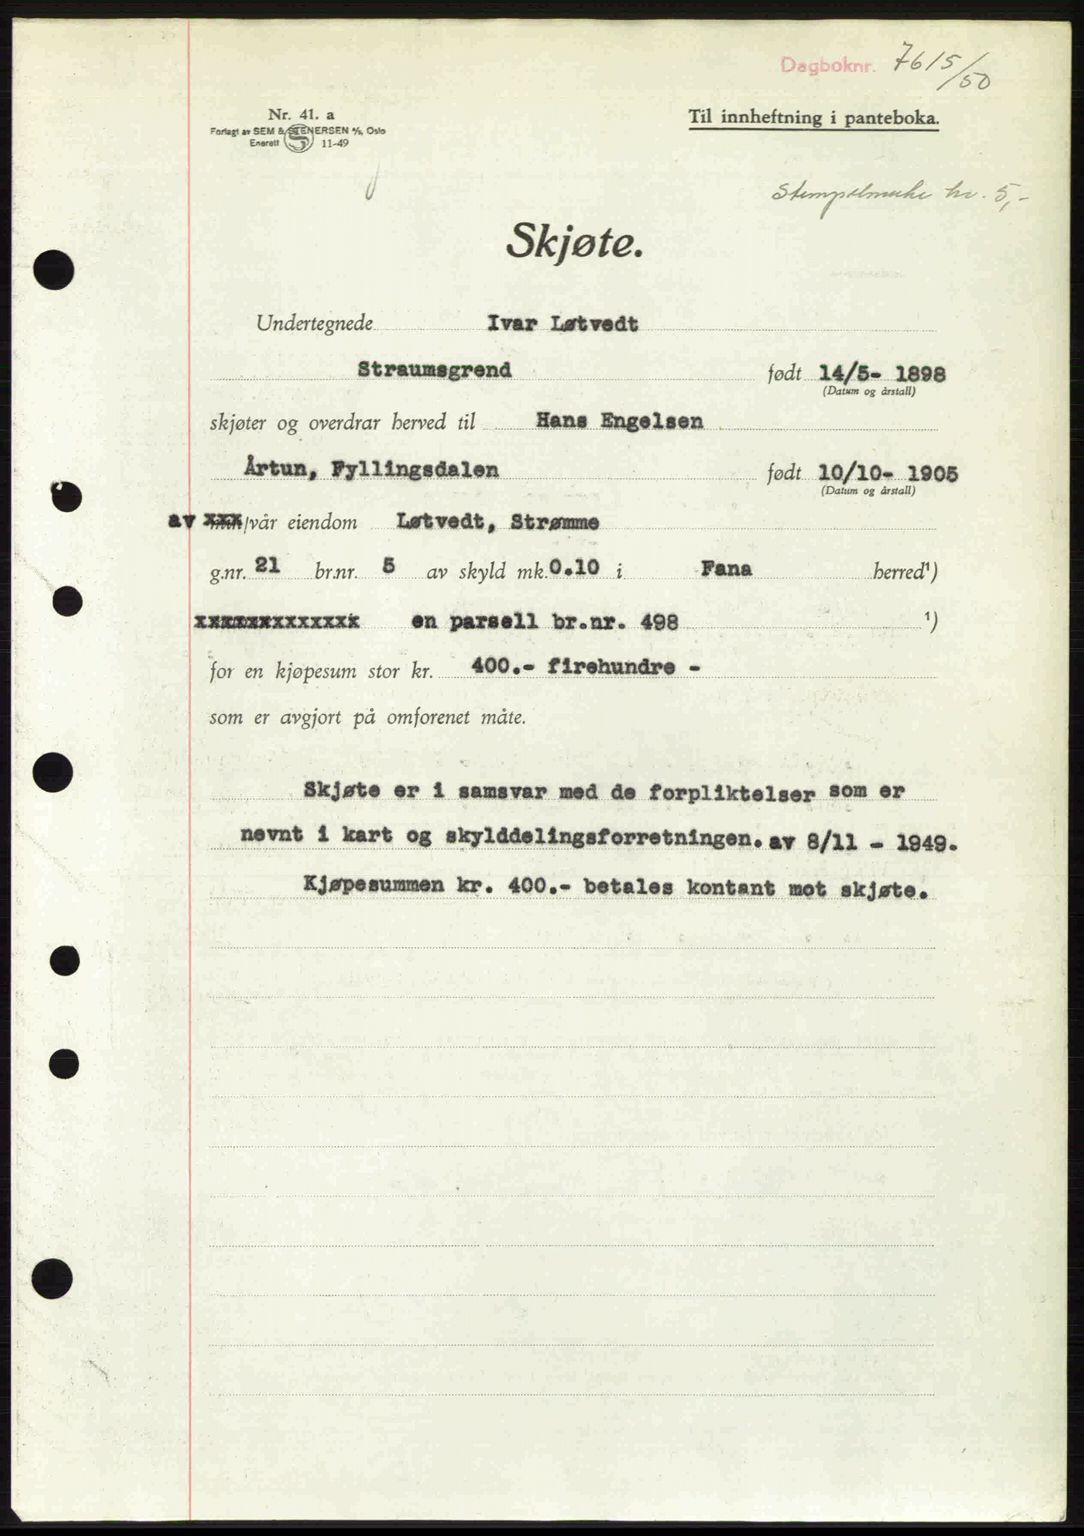 Dagboknr. 7615/50
Nr. 41. a
Forlagt av SEM & STENERSEN A/S, Oslo
Enerett 11-49
Til innheftning i panteboka.
Stempelmerke kr. 5,-
Skjøte.
Undertegnede Ivar Løtvedt
Straumsgrend født 14/5- 1898
(Datum og årstall)
skjøter og overdrar herved til Hans Engelsen
Årtun, Fyllingsdalen født 10/10- 1905
(Datum og årstall)
av xxx/vår eiendom Løtvedt, Strømme
g.nr. 21 br.nr. 5 av skyld mk. 0.10 i Fana herred¹)
xxxxxxxxxxxxx en parsell br.nr. 498 ¹)
for en kjøpesum stor kr. 400.- firehundre -
som er avgjort på omforenet måte.
Skjøte er i samsvar med de forpliktelser som er
nevnt i kart og skylddelingsforretningen. av 8/11 - 1949.
Kjøpesummen kr. 400.- betales kontant mot skjøte.